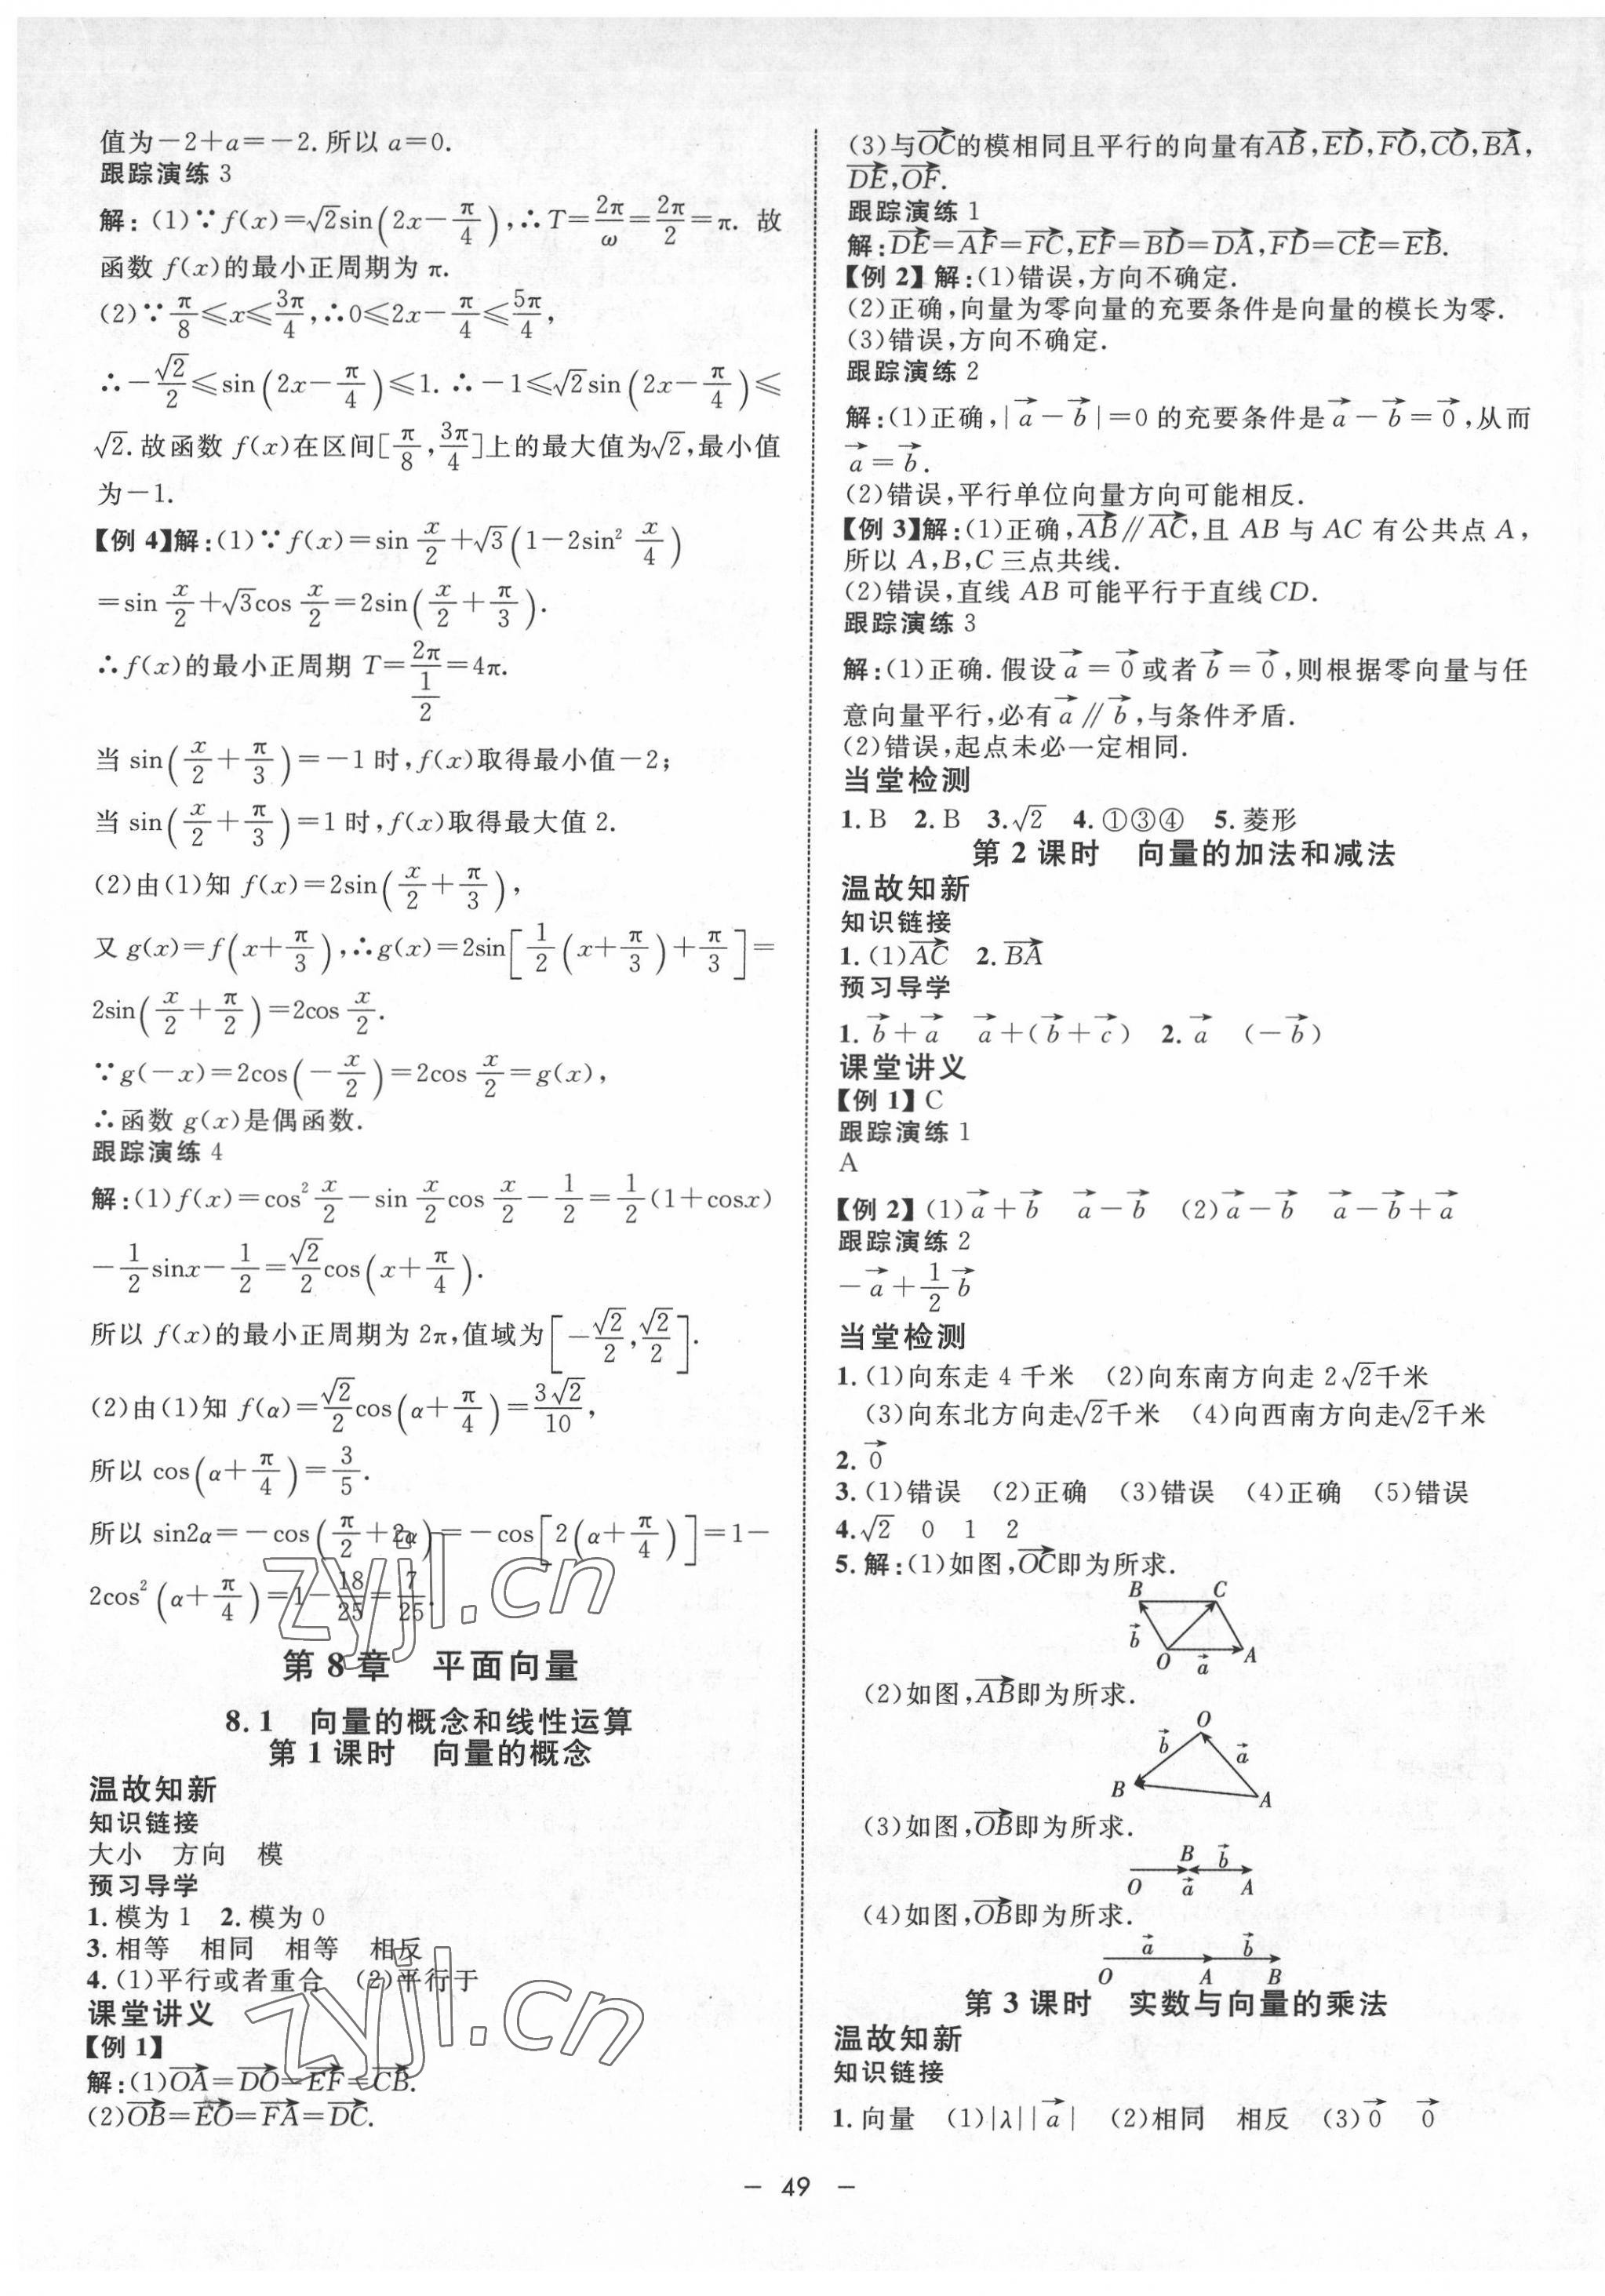 值为－2＋a＝－2.所以 a＝0.
跟踪演练 3
解：(1)∵f(x)＝√2sin(2x－π/4)，∴T＝2π/ω＝2π/2＝π. 故
函数 f(x)的最小正周期为 π.
(2)∵π/8≤x≤3π/4，∴0≤2x－π/4≤5π/4，
∴－√2/2≤sin(2x－π/4)≤1. ∴－1≤√2sin(2x－π/4)≤
√2.故函数 f(x)在区间[π/8，3π/4]上的最大值为√2，最小值
为－1.
【例 4】解：(1)∵f(x)＝sin x/2＋√3(1－2sin² x/4)
＝sin x/2＋√3cos x/2＝2sin(x/2＋π/3).
∴f(x)的最小正周期 T＝2π/(1/2)＝4π.
当 sin(x/2＋π/3)＝－1 时，f(x)取得最小值－2；
当 sin(x/2＋π/3)＝1 时，f(x)取得最大值 2.
(2)由(1)知 f(x)＝2sin(x/2＋π/3)，
又 g(x)＝f(x＋π/3)，∴g(x)＝2sin[1/2(x＋π/3)＋π/3]＝
2sin(x/2＋π/2)＝2cos x/2.
∵g(－x)＝2cos(－x/2)＝2cos x/2＝g(x)，
∴函数 g(x)是偶函数.
跟踪演练 4
解：(1)f(x)＝cos² x/2－sin x/2 cos x/2－1/2＝1/2(1＋cosx)
－1/2 sinx－1/2＝√2/2 cos(x＋π/4).
所以 f(x)的最小正周期为 2π，值域为[－√2/2，√2/2].
(2)由(1)知 f(α)＝√2/2 cos(α＋π/4)＝3√2/10，
所以 cos(α＋π/4)＝3/5.
所以 sin2α＝－cos(π/2＋2α)＝－cos[2(α＋π/4)]＝1－
2cos²(α＋π/4)＝1－18/25＝7/25.
zyjl.cn
第 8 章　平面向量
8.1　向量的概念和线性运算
第 1 课时　向量的概念
温故知新
知识链接
大小　方向　模
预习导学
1.模为 1　2.模为 0
3.相等　相同　相等　相反
4.(1)平行或者重合　(2)平行于
zyjl.cn
课堂讲义
【例 1】
解：(1)OA→＝DO→＝EF→＝CB→.
(2)OB→＝EO→＝FA→＝DC→.
(3)与OC→的模相同且平行的向量有AB→，ED→，FO→，CO→，BA→，
DE→，OF→.
跟踪演练 1
解：DE→＝AF→＝FC→，EF→＝BD→＝DA→，FD→＝CE→＝EB→.
【例 2】解：(1)错误，方向不确定.
(2)正确，向量为零向量的充要条件是向量的模长为零.
(3)错误，方向不确定.
跟踪演练 2
解：(1)正确，|a→－b→|＝0 的充要条件是a→－b→＝0→，从而
a→＝b→.
(2)错误，平行单位向量方向可能相反.
【例 3】解：(1)正确，AB→∥AC→，且 AB 与 AC 有公共点 A，
所以 A，B，C 三点共线.
(2)错误，直线 AB 可能平行于直线 CD.
跟踪演练 3
解：(1)正确.假设a→＝0→或者b→＝0→，则根据零向量与任
意向量平行，必有a→∥b→，与条件矛盾.
(2)错误，起点未必一定相同.
当堂检测
1. B　2. B　3.√2　4. ①③④　5.菱形
第 2 课时　向量的加法和减法
温故知新
知识链接
1. (1)AC→　2. BA→
预习导学
1. b→＋a→　a→＋(b→＋c→)　2. a→　(－b→)
课堂讲义
【例 1】C
跟踪演练 1
A
【例 2】(1)a→＋b→　a→－b→　(2)a→－b→　a→－b→＋a→
跟踪演练 2
－a→＋1/2 b→
当堂检测
1.(1)向东走 4 千米　(2)向东南方向走 2√2千米
(3)向东北方向走√2千米　(4)向西南方向走√2千米
2. 0→
3.(1)错误　(2)正确　(3)错误　(4)正确　(5)错误
4.√2　0　1　2
5.解：(1)如图，OC→即为所求.
B　C
b→
O　a→　A
(2)如图，AB→即为所求.
O
b→　a→
B　A
(3)如图，OB→即为所求.
B　b→
O　a→　A
(4)如图，OB→即为所求.
a→　b→
O　A　B
第 3 课时　实数与向量的乘法
温故知新
知识链接
1.向量　(1)|λ||a→|　(2)相同　相反　(3)0→　0→
－ 49 －